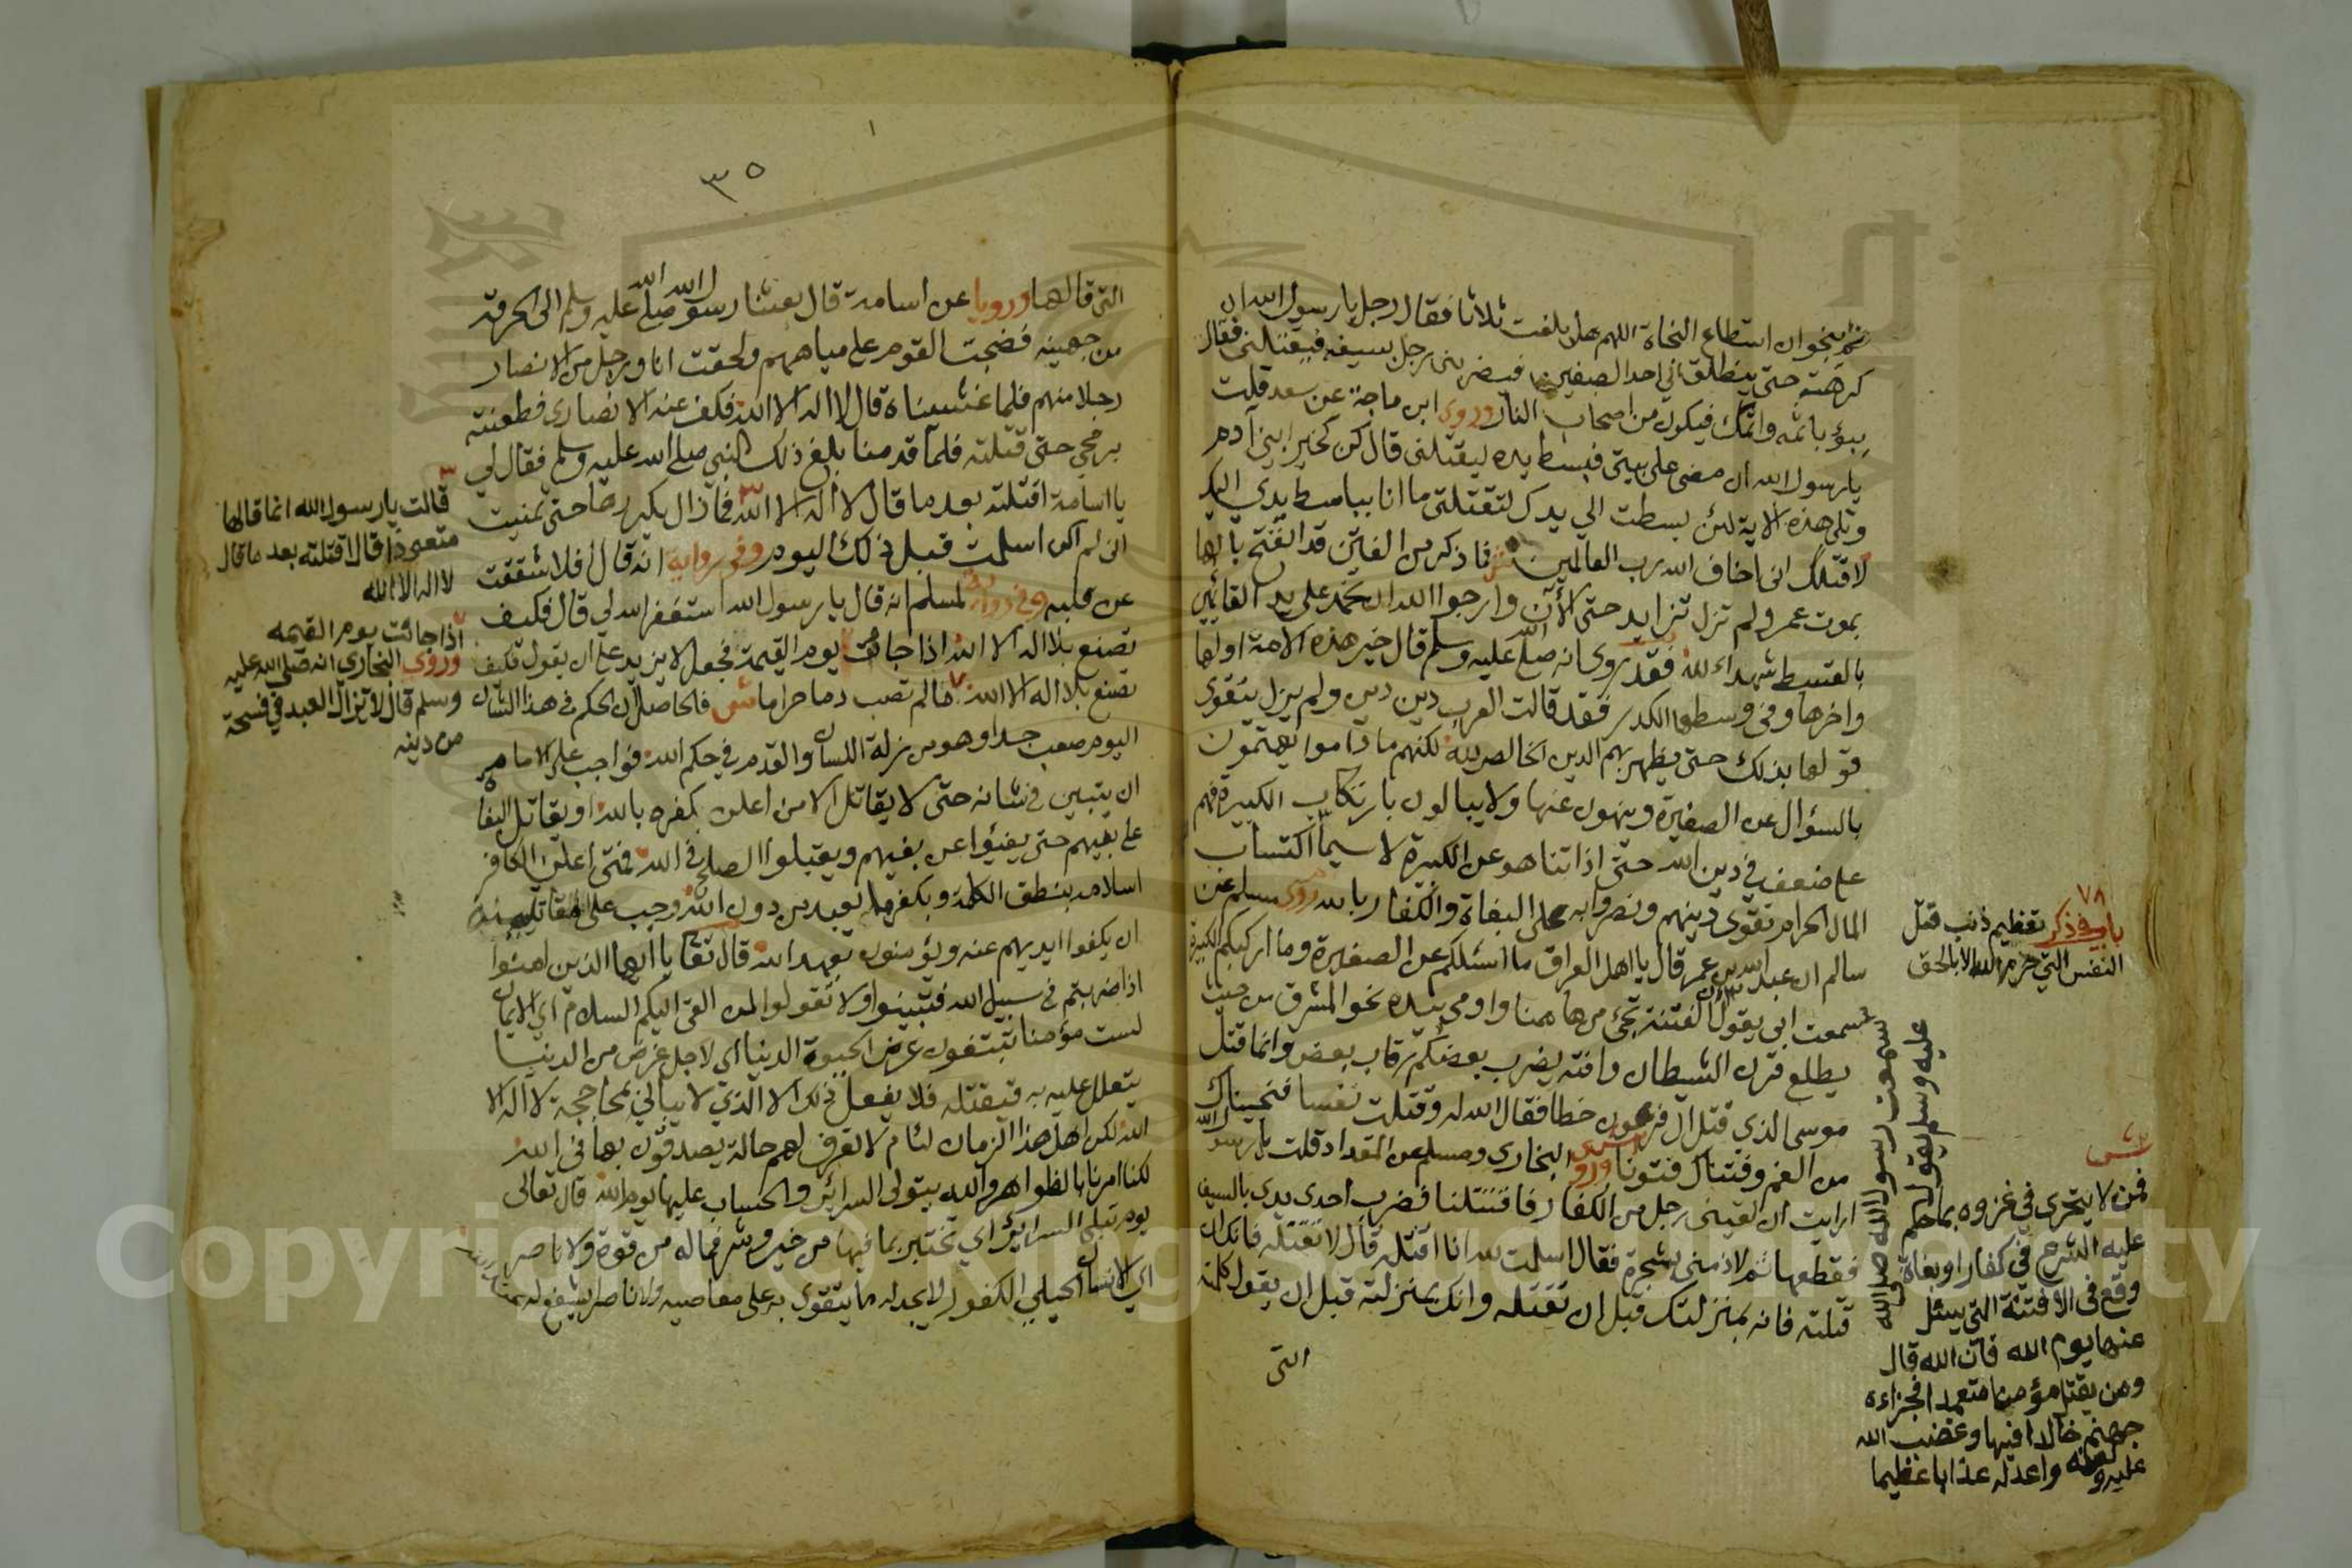 ثم لينجو ان استطاع النجاة اللهم هل بلغت ثلاثا فقال رجل يا رسول الله ان
كرهت حتى ينطلق بي احد الصفين فيضربني رجل بسيفه فيقتلني فقال
يبوؤ باثمه واثمك فيكون من اصحاب النار وروى ابن ماجة عن سعد قلت
يا رسول الله ان مضى على بيتي فبسط يده ليقتلني قال كن كخير ابني آدم
وتلى هذه الاية لئن بسطت الي يدك لتقتلني ما انا بباسط يدي اليك
لاقتلك اني اخاف الله رب العالمين ش فما ذكر من الفتن قد انفتح بابها
بموت عمر ولم تزل تتزايد حتى الآن وارجوا الله ان تخمد على يد القائمين
بالقسط شهداء لله فقد روي انه صلى الله عليه وسلم قال خير هذه الامة اولها
واخرها وفي وسطها الكدر فقد قالت العرب دين دين ولم يزل يتقوى
قولها بذلك حتى يظهر بهم الدين الخالص لله لكنهم ما داموا يهتمون
بالسؤال عن الصغيرة وينهون عنها ولا يبالون بارتكاب الكبيرة فهم
على ضعف في دين الله حتى اذا تناهو عن الكبيرة لا سيما اكتساب
المال الحرام تقوى دينهم ونصروا به على البغاة والكفار بالله روى مسلم عن
سالم ان عبد الله بن عمر قال يا اهل العراق ما اسئلكم عن الصغيرة وما اركبكم الكبيرة
سمعت ابي يقول ان الفتنة تجئ من هاهنا واومى بيده نحو المشرق من حيث
يطلع قرن الشيطان وانتم يضرب بعضكم رقاب بعض وانما قتل
موسى الذي قتل ال فرعون خطا فقال الله له وقتلت نفسا فنجيناك
من الغم وفتناك فتونا ورو البخاري ومسلم عن المقداد قلت يا رسول الله
ارايت ان لقيني رجل من الكفار فاقتتلنا فضرب احدى يدي بالسيف
فقطعها ثم لاذ مني بشجرة فقال اسلمت لله انا اقتله قال لا تقتله فانك ان
قتلته فانه بمنزلتك قبل ان تقتله وانك بمنزلته قبل ان يقول كلمته
التي
٧٨
باب في ذكر تعظيم ذنب قتل
النفس التي حرم الله الا بالحق
سمعت رسول الله صلى الله
عليه وسلم يقول
ش
فمن لا يتحرى في غزوه بما حكم
عليه الشرع في كفار او بغاة
وقع في الافتنة التي يسئل
عنها يوم الله فان الله قال
ومن يقتل مؤمنا متعمدا فجزاءه
جهنم خالدا فيها وغضب الله
عليه ولعنه واعد له عذابا عظيما
٣٥
التي قالها ورويا عن اسامة قال بعثنا رسول الله صلى الله عليه وسلم الى الحرقة
من جهينه فصبحت القوم على مياههم ولحقت انا ورجل من الانصار
رجلا منهم فلما غشيناه قال لا اله الا الله فكف عنه الانصاري فطعنته
برمحي حتى قتلته فلما قدمنا بلغ ذلك النبي صلى الله عليه وسلم فقال لي
يا اسامة اقتلته بعد ما قال لا اله الا الله فما زال يكررها حتى تمنيت
اني لم اكن اسلمت قبل ذلك اليوم وفي رواية انه قال افلا شققت
عن قلبه وفي رواية لمسلم انه قال يا رسول الله استغفر الله لي قال فكيف
تصنع بلا اله الا الله اذا جائت يوم القيمة فجعل لا يزيد على ان يقول فكيف
تصنع بلا اله الا الله ما لم تصب دما حراما ش فالحاصل ان الحكم في هذا الشان
اليوم صعب جدا وهو من زلة اللسان والقدم في حكم الله فواجب على الامام
ان يتبين في شانه حتى لا يقاتل الا من اعلن بكفره بالله او يقاتل البغاة
على بغيهم حتى يفيؤا عن بغيهم ويقبلوا الصلح في الله فمتى اعلن الكافر
اسلامه بنطق الكلمة ويكفر بما يعبد من دون الله وجب على مقاتليه
ان يكفوا ايديهم عنه ويؤمنوه بعهد الله قال تعا يا ايها الذين امنوا
اذا ضربتم في سبيل الله فتبينوا ولا تقولوا لمن القى اليكم السلام اي الايمان
لست مؤمنا تبتغون عرض الحيوة الدنيا اي لاجل غرض من الدنيا
يتعلل عليه به فيقتله فلا يفعل ذلك الا الذي لا يبالي بمحاججة لا اله الا
الله لكن اهل هذا الزمان لئام لا تعرف لهم حالة يصدقون بها في الله
لكنا امرنا بالظواهر والله يتولى السرائر والحساب عليها يوم الله قال تعالى
يوم تبلى السرائر اي تختبر بما فيها من خير وشر فما له من قوة ولا ناصر
اي الانسان الكفور لا يجد له ما يتقوى به على معاصيه ولا ناصر يشفع له
٣
قالت يا رسول الله انما قالها
متعوذا قال اقتلته بعد ما قال
لا اله الا الله
اذا جائت يوم القيمه
وروى البخاري انه صلى الله عليه
وسلم قال لا يزال العبد في فسحة
من دينه